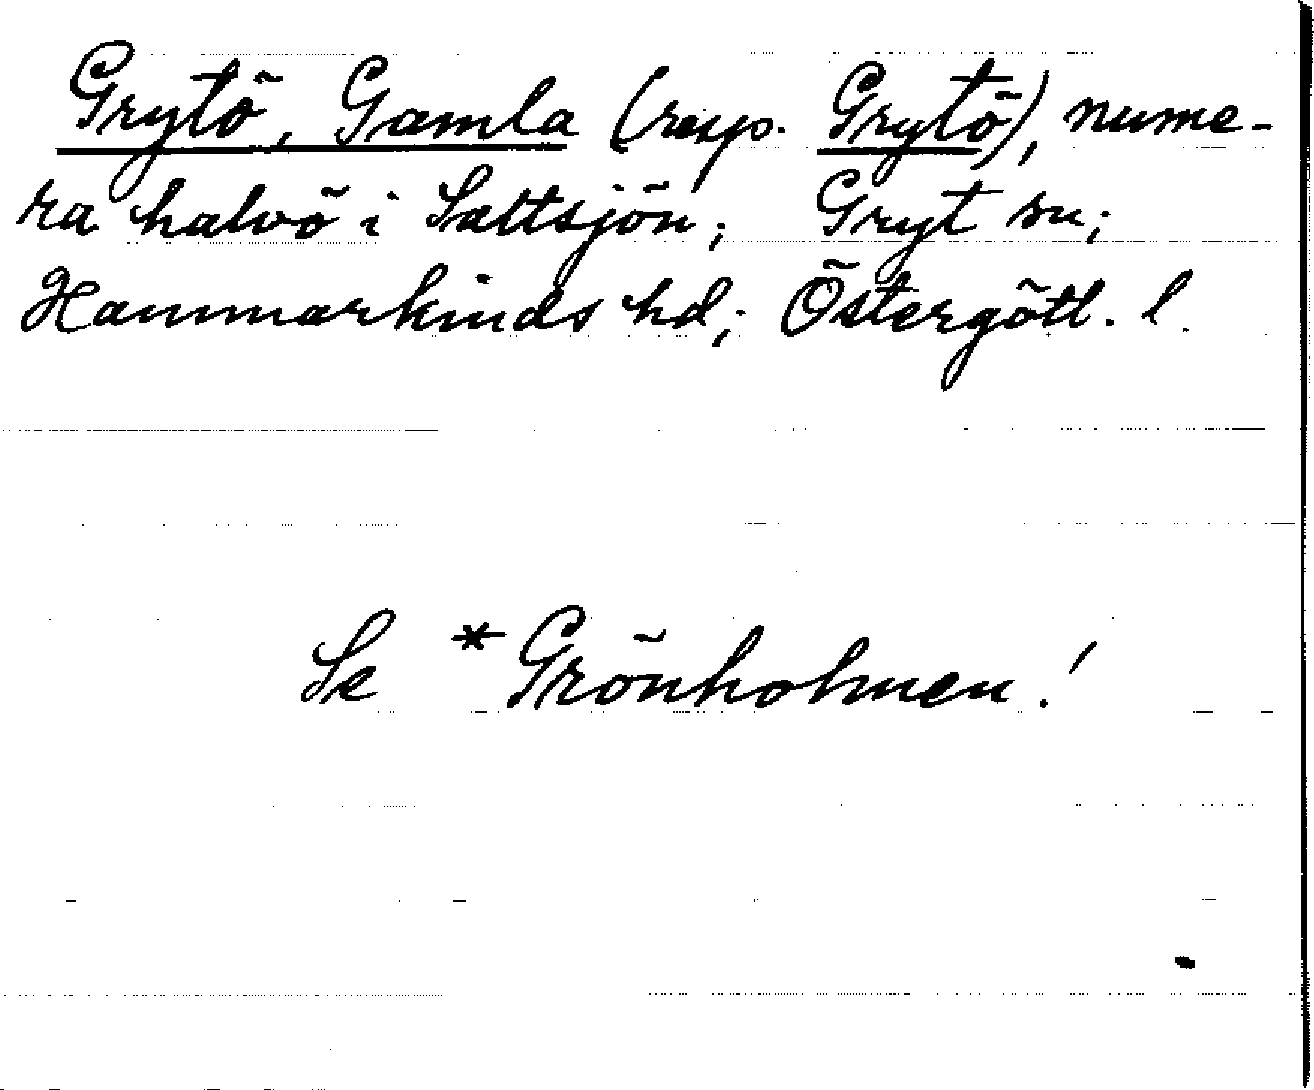 Grytö, Gamla (resp. Grytö), nume-
ra halvö i Saltsjön; Gryt sn;
Hammarkinds hd; Östergötl. l.
Se *Grönholmen!